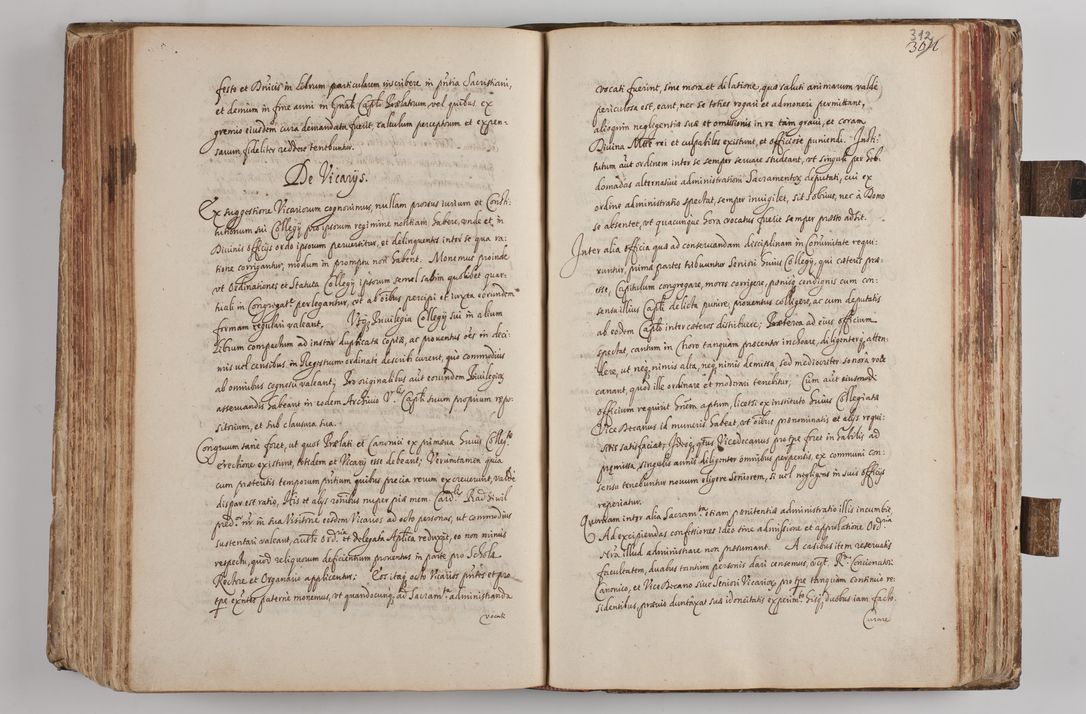 festo et Divisim in librum particularem inscribere in pntia Sacristiani,
et demum in fine anni in Gnali Caplo Prælatum, vel quibus ex
gremio eiusdem cura demandata fuerit, calculum perceptorum et expen-
sarum fideliter reddere tenebuntur.
De Vicarijs.
Ex suggestione Vicariorum cognovimus, nullam prorsus iurium et Consti-
tutionum sui Collegij pro ipsorum regimine notitiam habere, unde et in
Divinis officijs ordo ipsorum pervertitur, et delinquentes inter se qua ra-
tione corrigantur, modum in promptu non habent. Monemus proinde
ut Ordinationes et Statuta Collegij ipsorum semel saltim quolibet quar-
tuali in Congregat. perlegantur, ut ab oibus percipi et iuxta eorundem
formam regulari valeant, Utq Privilegia Collegij sui in alium
Librum compactum ad instar duplicatæ copiæ, ac proventus oes in deci-
mis vel censibus in Regestrum ordinate describi curent, quo commodius
ab omnibus cognosci valeant; Pro originalibus aut eorundem Privilegijs
asservandis habeant in eodem Archivio V. Capli suum proprium repo-
sitorium, et sub clausura sua.
Congruum sane foret, ut quot Prælati et Canonici ex primæva huius Colleg.
erectione existunt, totidem et Vicarij esse debeant; Veruntamen quia
cum præteritis temporum pntium quibus precia rerum excreverunt, valde
dispar est ratio, His et alijs rônibus nuper piæ mem. Card. Radziwil
pred. nr in sua Visitne eosdem Vicarios ad octo personas, ut commodius
sustentari valeant, aucthe Ord. et delegata Aplica reduxit, eo non minus
respectu, quod reliquorum deficientium proventus in parte pro Schola
Rectore et Organario applicentur; Eos itaq octo Vicarios pntes et pro
tpe exntes paterne monemus, ut quandocunq ad Sacram. administranda
vocati
312
vocati fuerint, sine mora et dilatione, quæ saluti animarum valde
periculosa est, eant, nec se toties rogari et admoneri permittant,
alioquin negligentiæ suæ et omissionis in re tam gravi, et coram
Divina Mtte rei et culpabiles existunt, et officiose puniendi. Insti-
tutum aut ordinem inter se semper servare studeant, ut singuli per heb-
domadas alternative administrationi Sacramentor deputati, cui ex
ordine administratio spectat, semper invigilet, sit sobrius, nec a Domo
se absentet, ut quacunque hora vocatus fuerit semper præsto adsit.
Inter alia officia quæ ad conservandam disciplinam in Comunitate requi-
runtur, primæ partes tribuuntur Seniori huius Collegij, qui cæteris præ-
esse, Capitulum congregare, mores corrigere, poenisq condignis cum con-
sensu illius Capli delicta punire, proventus colligere, ac cum deputatis
ab eodem Caplo inter cæteros distribuere; Præterea ad eius officium
spectat, cantum in Choro tanquam præcentor inchoare, diligenterq atten-
dere, ut neq nimis alta, neq nimis demissa, sed mediocriter sonora voce
canant, quod ille ordinare et moderari tenebitur; Cum aut eiusmodi
officium requirit hoiem aptum, licet ex instituto huius Collegiatæ
Vice Decanus id muneris habeat, ut oibus prænominatis et alijs requi-
sitis satisfaciat, Ideoq qtus Vicedecanus pro tpe foret in habilis ad
præmissa, singulis annis diligenter omnibus perpensis, ex communi con-
sensu tenebuntur novum eligere Seniorem, si vel negligens in suis officijs
reperiatur.
Quoniam inter alia Sacram. etiam poenitentiæ administratio illis incumbit,
Ad excipiendas confessiones ideo sine admissione et approbatione Ord.
Nra illud administrare non possumant. A casibus item reservatis
facultatem, duabus tantum personis dari censemus, vcpt. R. Concionatori
Canonico, et Vice Decano sive Seniori Vicarior, pro tpe tanquam continuo re-
sidentibus, prævio duntaxat suæ idoneitatis experim. hisq duobus iam facto.
Curare